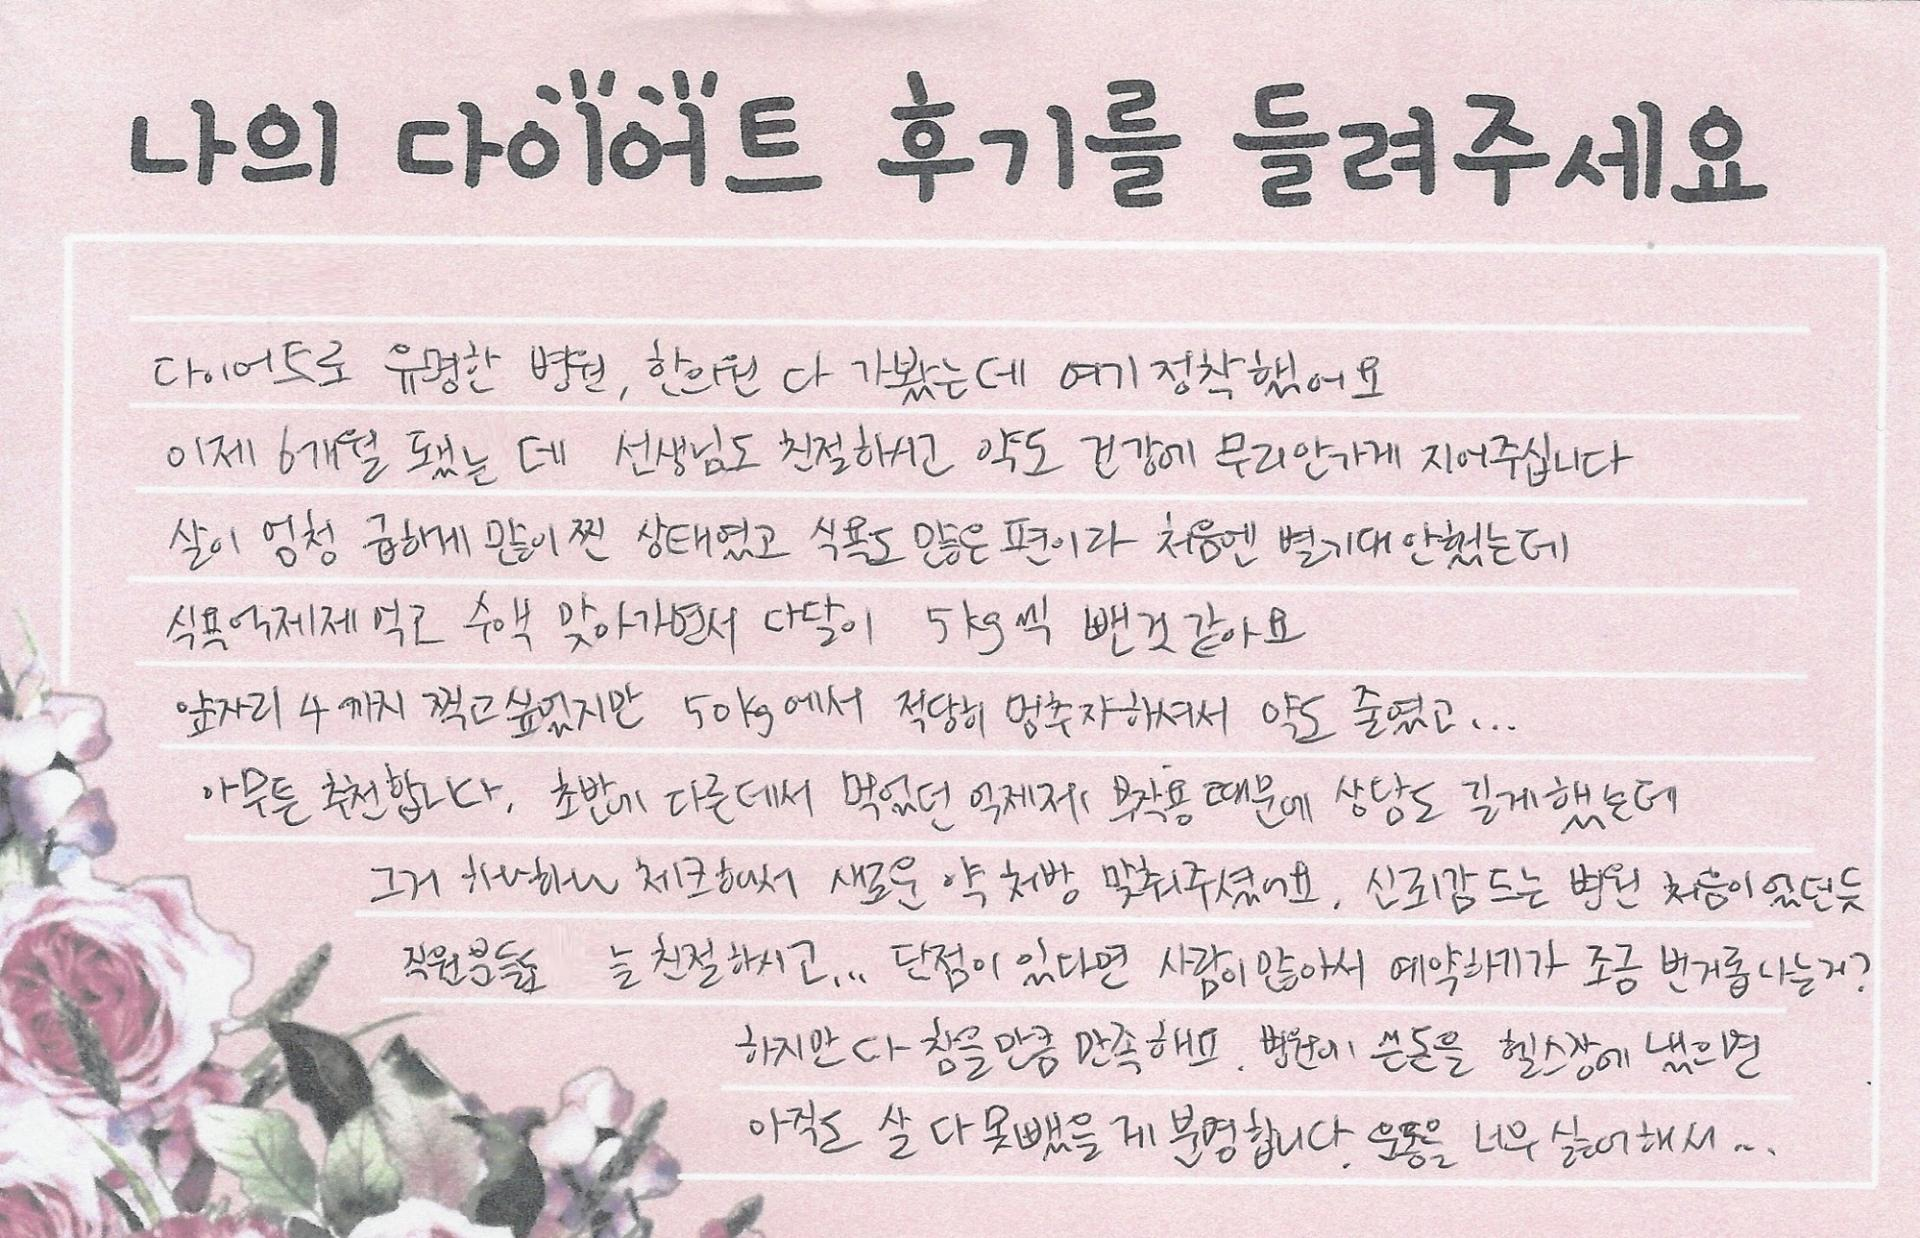 나의 다이어트 후기를 들려주세요
다이어트로 유명한 병원, 한의원 다 가봤는데 여기 정착했어요
이제 6개월 됐는데 선생님도 친절하시고 약도 건강에 무리안가게 지어주십니다
살이 엄청 급하게 많이 찐 상태였고 식욕도 많은 편이라 처음엔 별기대 안했는데
식욕억제제 먹고 수액 맞아가면서 다달이 5kg씩 뺀것 같아요
앞자리 4까지 찍고싶었지만 50kg에서 적당히 멈추자하셔서 약도 줄였고...
아무튼 추천합니다. 초반에 다른데서 먹었던 억제제 부작용 때문에 상담도 길게했는데
그거 하나하나 체크해서 새로운 약 처방 맞춰주셨어요. 신뢰감 드는 병원 처음이었던듯
직원분들도 늘 친절하시고... 단점이 있다면 사람이 많아서 예약하기가 조금 번거롭다는거?
하지만 다 참을만큼 만족해요. 병원에 쓴돈을 헬스장에 냈으면
아직도 살 다 못뺐을 게 분명합니다. 운동을 너무 싫어해서...